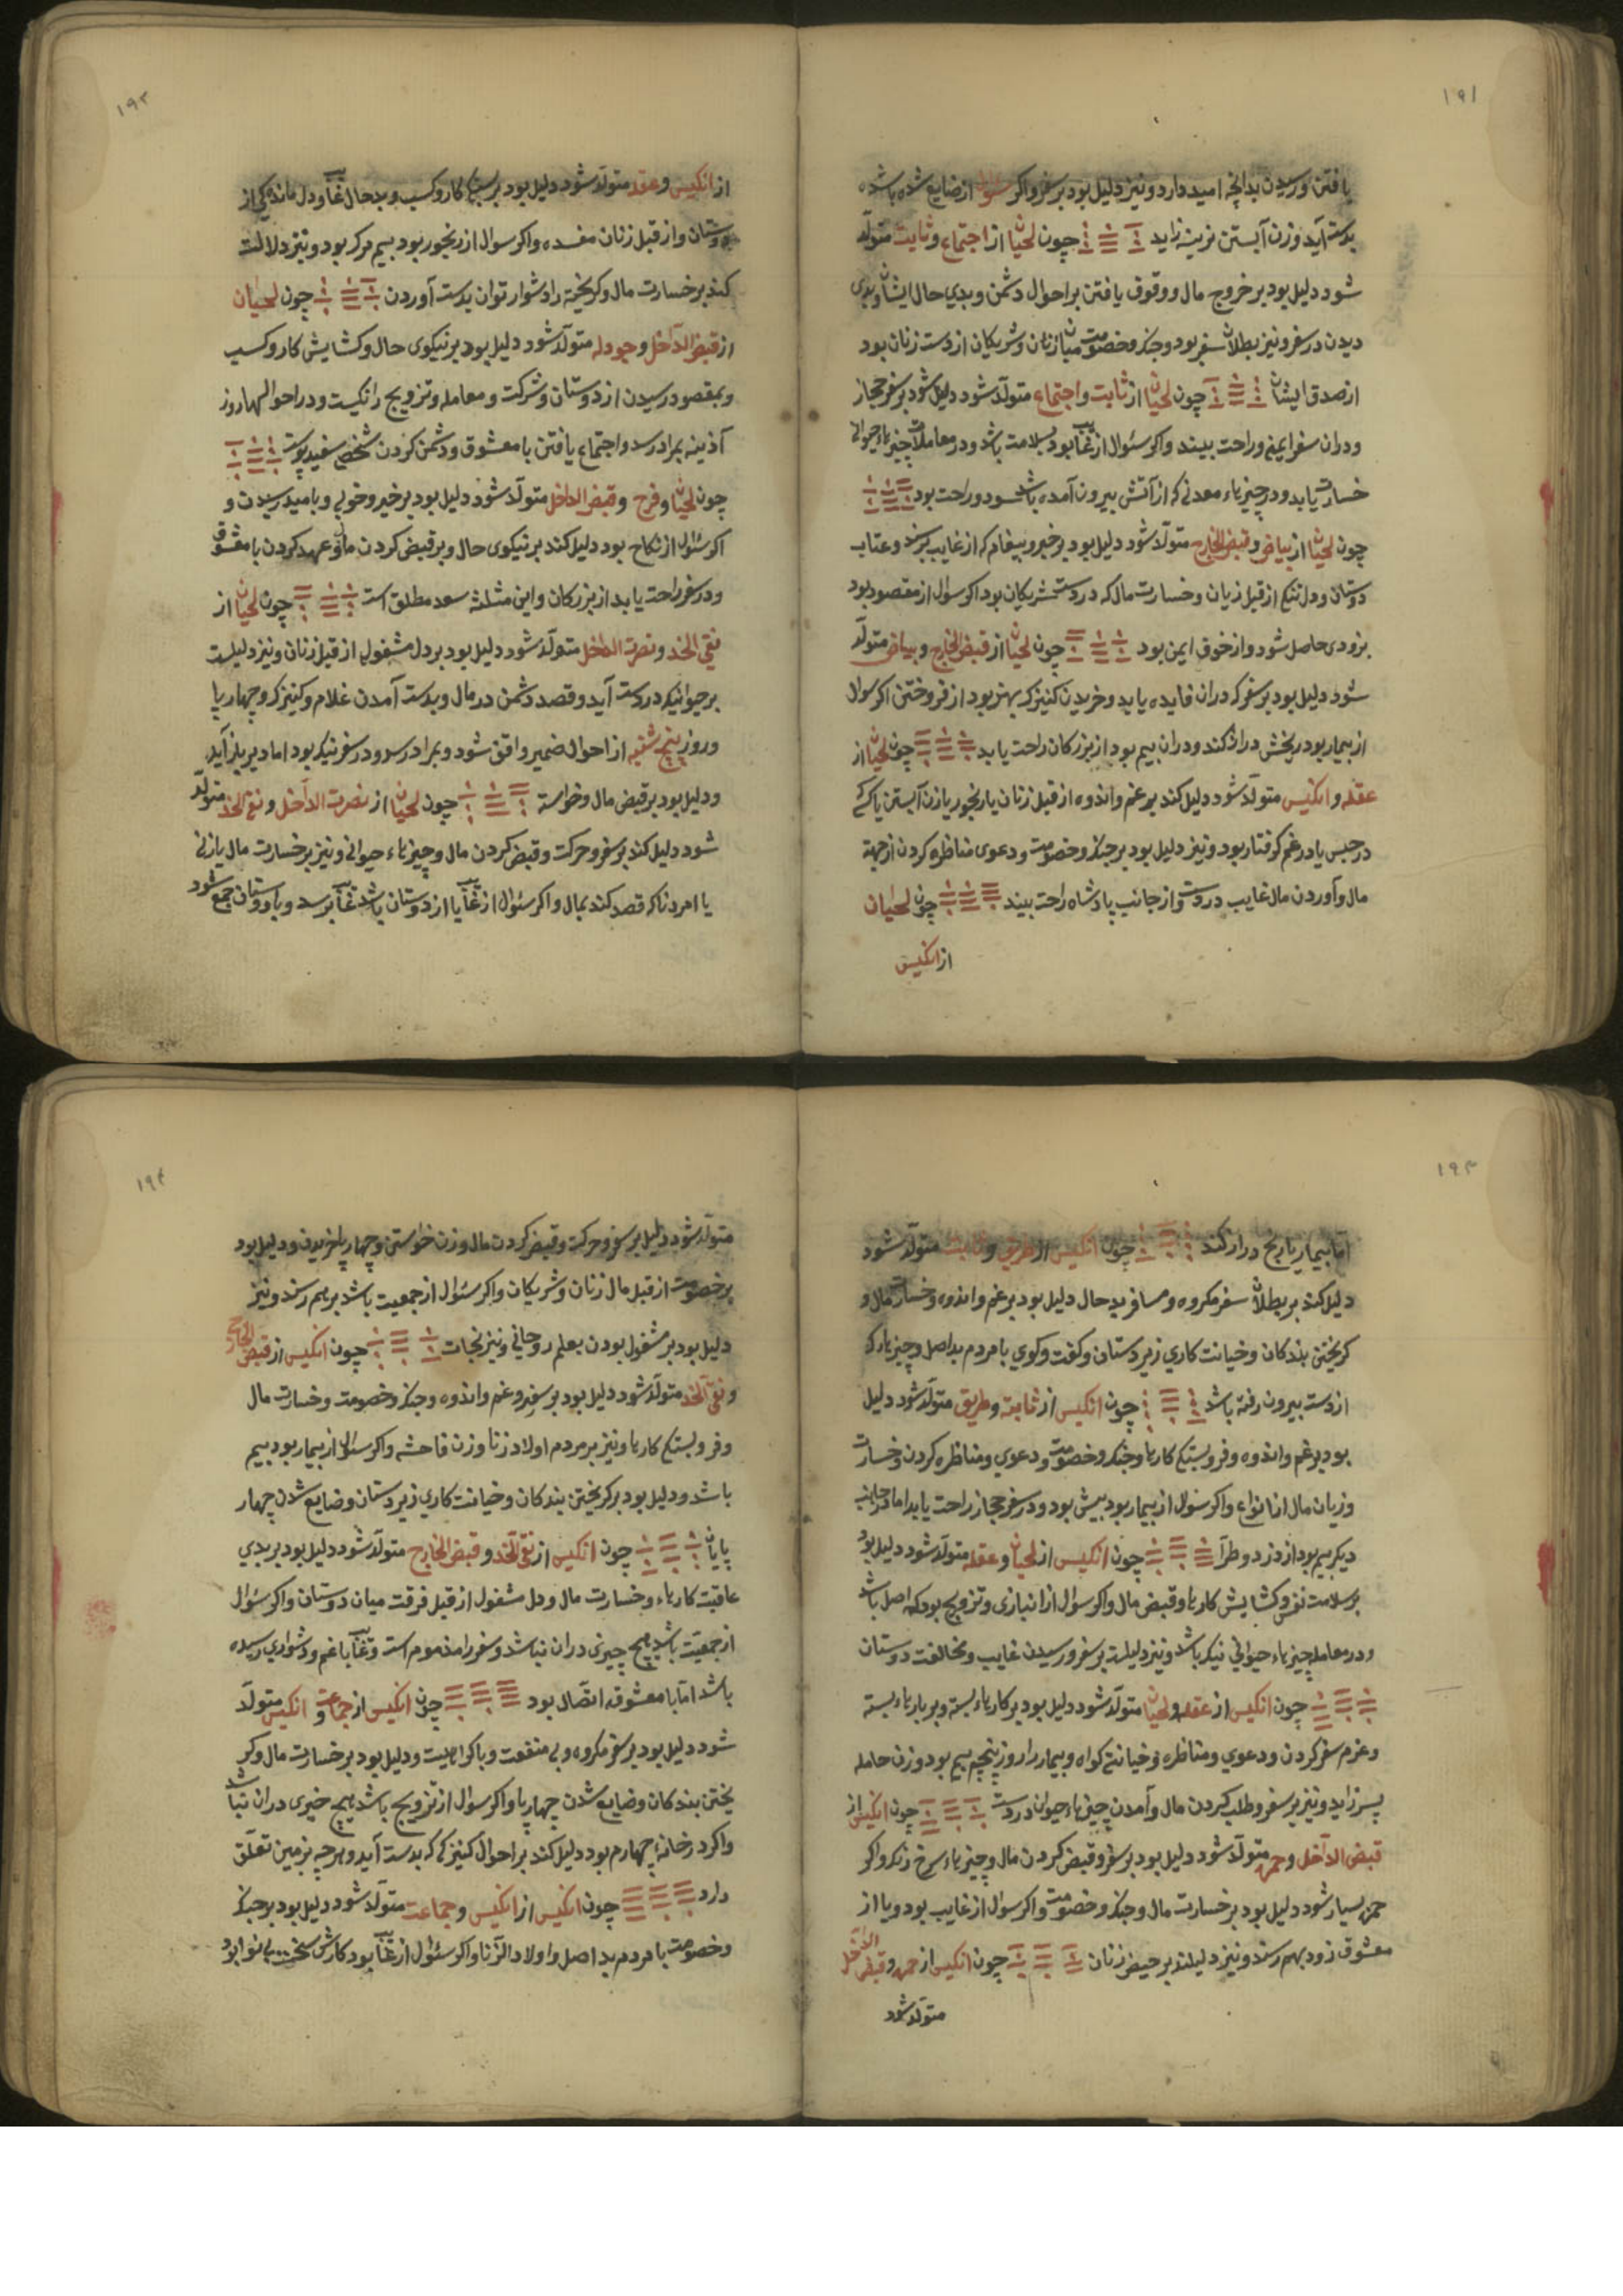 ١٩١
یافتن ورسیدن بدانچه امید دارد ونیز دلیل بود بر سفر واکر سوال از ضایع شده باشد
بدست آید وزن آبستن نرینه زاید چون لحیان از اجتماع وثابت متولد
شود دلیل بود بر خروج مال ووقوف یافتن بر احوال دشمن وبدی حال ایشان وبدی
دیدن در سفر ونیز بطلان سفر بود وجنک وخصومت میان زنان وشریکان از دست زنان بود
از صدق ایشان چون لحیان از ثابت واجتماع متولد شود دلیل شود بر سفر حجاز
ودران سفر ایمنی وراحت بیند واکر سئوال از غایب بود بسلامت باشد ودر معاملات چیزهاء حیوانی
خسارت یابد ودر چیزهاء معدنی که از آتش بیرون آمده باشد سود وراحت بود
چون لحیان از بیاض وقبض الخارج متولد شود دلیل بود بر خبر وپیغام که از غایب برسد وعتاب
دوستان ودل تنکی از قبل زیان وخسارت مال که در دست شریکان بود اکر سوال از مقصود بود
بزودی حاصل شود واز خوف ایمن بود چون لحیان از قبض الخارج وبیاض متولد
شود دلیل بود بر سفر که دران فایده یابد وخریدن کنیزک بهتر بود از فروختن اکر سوال
از بیمار بود رنجش دراز کند ودران بیم بود از بزرکان راحت یابد چون لحیان از
عقله وانکیس متولد شود دلیل کند بر غم واندوه از قبل زنان یا رنجور یا زن آبستن یا کسی
در حبس یا در غم کرفتار بود ونیز دلیل بود بر جنک وخصومت ودعوی مناظره کردن از جهة
مال وآوردن مال غایب در دست واز جانب پادشاه راحت بیند چون لحیان
از انکیس
١٩٢
از انکیس وعقله متولد شود دلیل بود بر بستکی کار وکسب وبد حال غایب ودل ماندکی از
دوستان واز قبل زنان مفسده واکر سوال از رنجور بود بیم مرک بود ونیز دلالت
کند بر خسارت مال وکریخته را دشوار توان بدست آوردن چون لحیان
از قبض الداخل وجودله متولد شود دلیل بود بر نیکوی حال وکشایش کار وکسب
وبمقصود رسیدن از دوستان وشرکت ومعامله وتزویج را نیکست ودر احوالها روز
آذینه بمراد رسد واجتماع یافتن با معشوق ودشمن کردن شخص سفید پوست
چون لحیان وفرح وقبض الداخل متولد شود دلیل بود بر خیر وخوبی وبامید رسیدن و
اکر سئوال از نکاح بود دلیل کند بر نیکوی حال وبر قبض کردن مال وعهد کردن با معشوق
ودر سفر راحت یابد از بزرکان واین مثلثه سعد مطلق است چون لحیان از
نقی الخد ونصرت الداخل متولد شود دلیل بود بر دل مشغولی از قبل زنان ونیز دلیلست
بر حیوانیکه در دست آید وقصد دشمن در مال وبدست آمدن غلام وکنیزک وچهارپا
وروز پنج شنبه از احوال ضمیر واقف شود وبمراد رسد ودر سفر نیک بود اما دیر باز آید
ودلیل بود بر قبض مال وخواسته چون لحیان از نصرت الداخل ونقی الخد متولد
شود دلیل کند بر سفر وحرکت وقبض کردن مال وچیزهاء حیوانی ونیز بر خسارت مال یا زنی
یا امردنا که قصد کند بمال واکر سئوال از غایب یا از دوستان باشد غایب برسد وبا دوستان جمع شود
١٩٣
اما بیمار را رنج دراز کند چون انکیس از طریق وثابت متولد شود
دلیل کند بر بطلان سفر مکروه ومسافر بد حال دلیل بود بر غم واندوه وخسارت مال و
کریختن بندکان وخیانت کاری زیردستان وکفت وکوی با مردم بد اصل وچیزها که
از دست بیرون رفته باشد چون انکیس از ثابته وطریق متولد شود دلیل
بود بر غم واندوه وفروبستکی کارها وجنک وخصومت ودعوی ومناظره کردن وخسارت
وزیان مال از انواع واکر سئوال از بیمار بود بیش بود ودر سفر حجاز راحت یابد اما در جانب
دیکر بیم بود از دزد وطرار چون انکیس از لحیان وعقله متولد شود دلیل بود
بر سلامت نفس وکشایش کارها وقبض مال واکر سوال از انبازی وتزویج بود که اصل باشد
ودر معامله چیزهاء حیوانی نیک باشد ونیز دلیلست بر سفر ورسیدن غایب ومخالفت دوستان
چون انکیس از عقله ولحیان متولد شود دلیل بود بر کارهاء بسته وبر بارهاء بسته
وعزم سفر کردن ودعوی ومناظره وخیانتی کواه وبیمار را روز پنجم بیم بود وزن حامله
پسر زاید ونیز بر سفر وطلب کردن مال وآمدن چیزهاء حیوان در دست چون انکیس از
قبض الداخل وحمره متولد شود دلیل بود بر سفر وقبض کردن مال وچیزهاء سرخ رنک واکر
حمره بسیار شود دلیل بود بر خسارت مال وجنک وخصومت واکر سوال از غایب بود ویا از
معشوق زود بهم رسند ونیز دلیلند بر حیض زنان چون انکیس از حمره وقبض الداخل
متولد شود
١٩٤
متولد شود دلیل بر سفر وحرکت وقبض کردن مال وزن خواستن وچهارپا خریدن ودلیل بود
بر خصومت از قبل مال زنان وشریکان واکر سئوال از جمعیت باشد بر هم رسند ونیز
دلیل بود بر مشغول بودن بعلم روحانی ونیز نجات چون انکیس از قبض الخارج
ونقی الخد متولد شود دلیل بود بر سفر وغم واندوه وجنک وخصومت وخسارت مال
وفروبستکی کارها ونیز بر مردم اولاد زنا وزن فاحشه واکر سئوال از بیمار بود بیم
باشد ودلیل بود بر کریختن بندکان وخیانت کاری زیردستان وضایع شدن چهار
پایان چون انکیس از نقی الخد وقبض الخارج متولد شود دلیل بود بر بدی
عاقبت کارهاء وخسارت مال ودل مشغول از قبل فرقت میان دوستان واکر سئوال
از جمعیت باشد هیچ چیزی دران نباشد وسفر را مذموم است وغایب با غم ودشواری رسیده
باشد اما با معشوقه اتصال بود چون انکیس از جماعت وانکیس متولد
شود دلیل بود بر سفر مکروه وبی منفعت وبا کراهیت ودلیل بود بر خسارت مال وکر
یختن بندکان وضایع شدن چهارپا واکر سوال از تزویج باشد هیچ خیری دران نباشد
واکر در خانهء چهارم بود دلیل کند بر احوال کنیزکی که بدست آید وهرچه بزمین تعلق
دارد چون انکیس از انکیس وجماعت متولد شود دلیل بود بر جنک
وخصومت با مردم بد اصل واولاد الزنا واکر سئوال از غایب بود کارش سخت